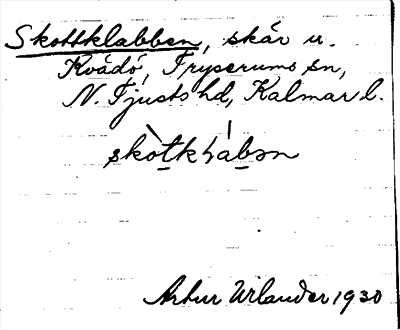 Skottklabben, skär u.
Kvädö, Fryserums sn,
N. Tjusts hd, Kalmar l.
skòtkḷábən
Artur Urlander 1930